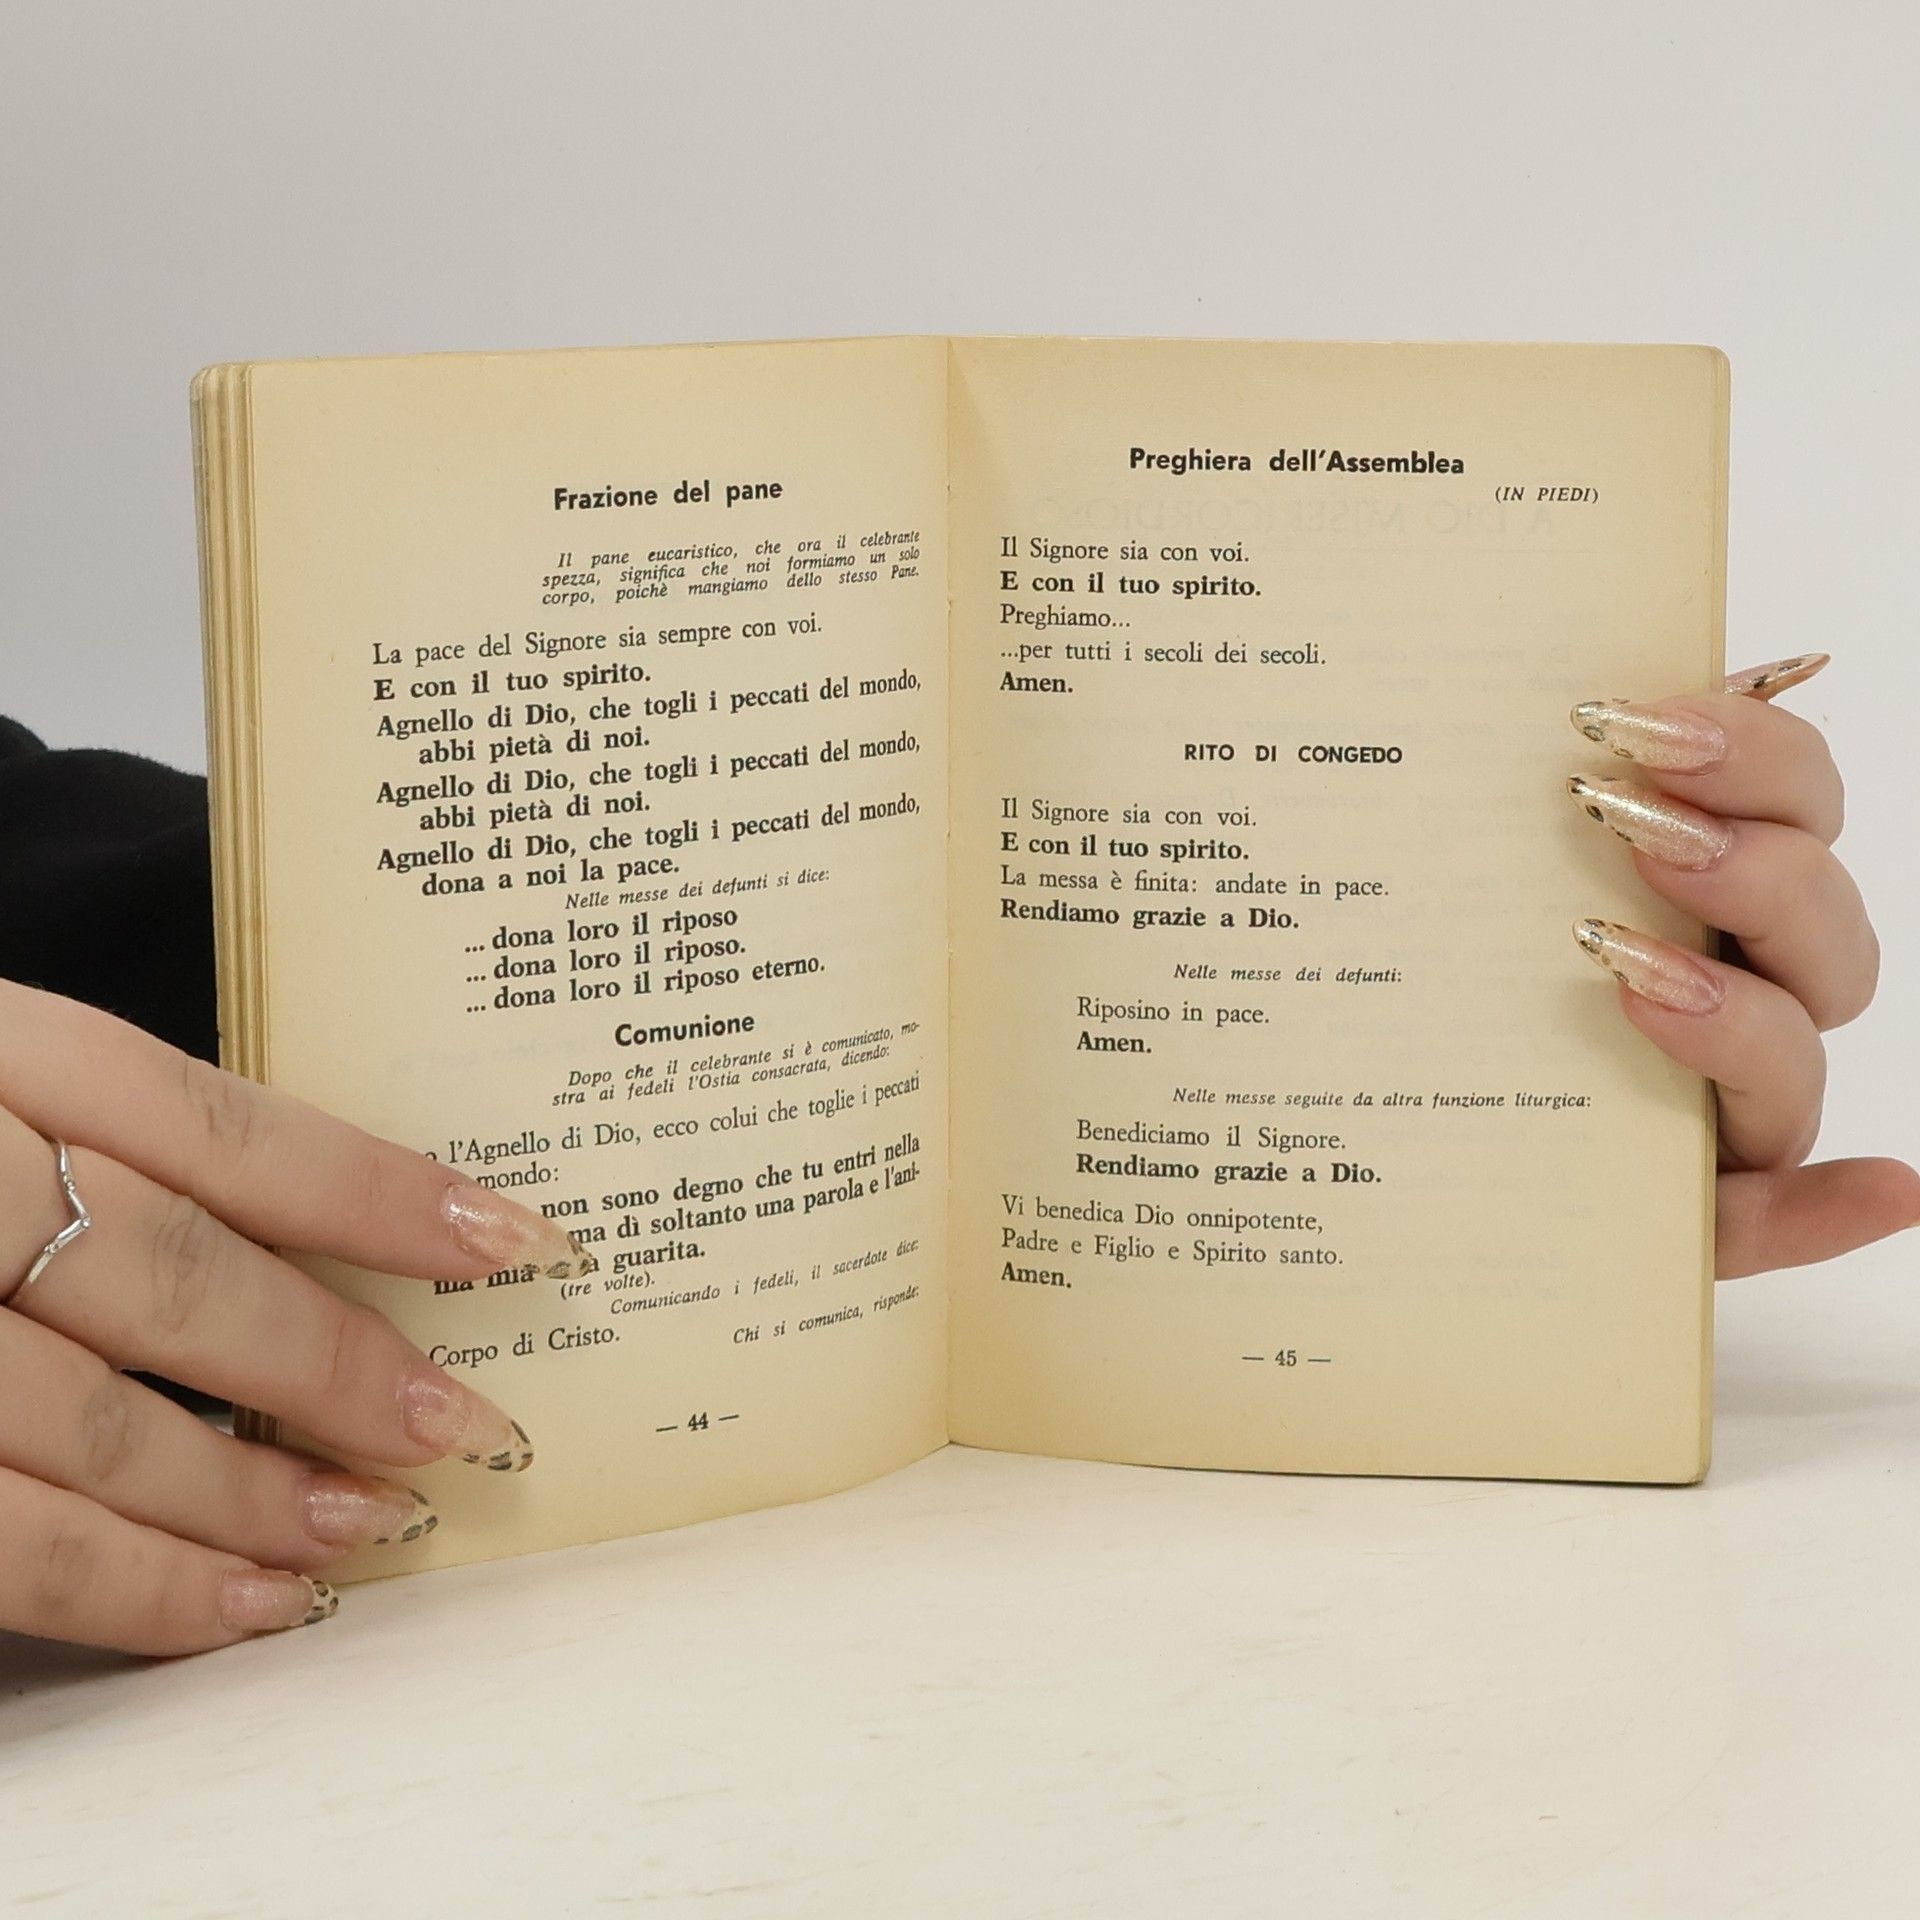 Frazione del pane
Il pane eucaristico, che ora il celebrante
spezza, significa che noi formiamo un solo
corpo, poichè mangiamo dello stesso Pane.
La pace del Signore sia sempre con voi.
E con il tuo spirito.
Agnello di Dio, che togli i peccati del mondo,
abbi pietà di noi.
Agnello di Dio, che togli i peccati del mondo,
abbi pietà di noi.
Agnello di Dio, che togli i peccati del mondo,
dona a noi la pace.
Nelle messe dei defunti si dice:
... dona loro il riposo
... dona loro il riposo.
... dona loro il riposo eterno.
Comunione
Dopo che il celebrante si è comunicato, mo-
stra ai fedeli l'Ostia consacrata, dicendo:
l'Agnello di Dio, ecco colui che toglie i peccati
mondo:
non sono degno che tu entri nella
ma dì soltanto una parola e l'ani-
ma mia guarita.
(tre volte).
Comunicando i fedeli, il sacerdote dice:
Corpo di Cristo.
Chi si comunica, risponde:
— 44 —
Preghiera dell'Assemblea
(IN PIEDI)
Il Signore sia con voi.
E con il tuo spirito.
Preghiamo...
...per tutti i secoli dei secoli.
Amen.
RITO DI CONGEDO
Il Signore sia con voi.
E con il tuo spirito.
La messa è finita: andate in pace.
Rendiamo grazie a Dio.
Nelle messe dei defunti:
Riposino in pace.
Amen.
Nelle messe seguite da altra funzione liturgica:
Benediciamo il Signore.
Rendiamo grazie a Dio.
Vi benedica Dio onnipotente,
Padre e Figlio e Spirito santo.
Amen.
— 45 —